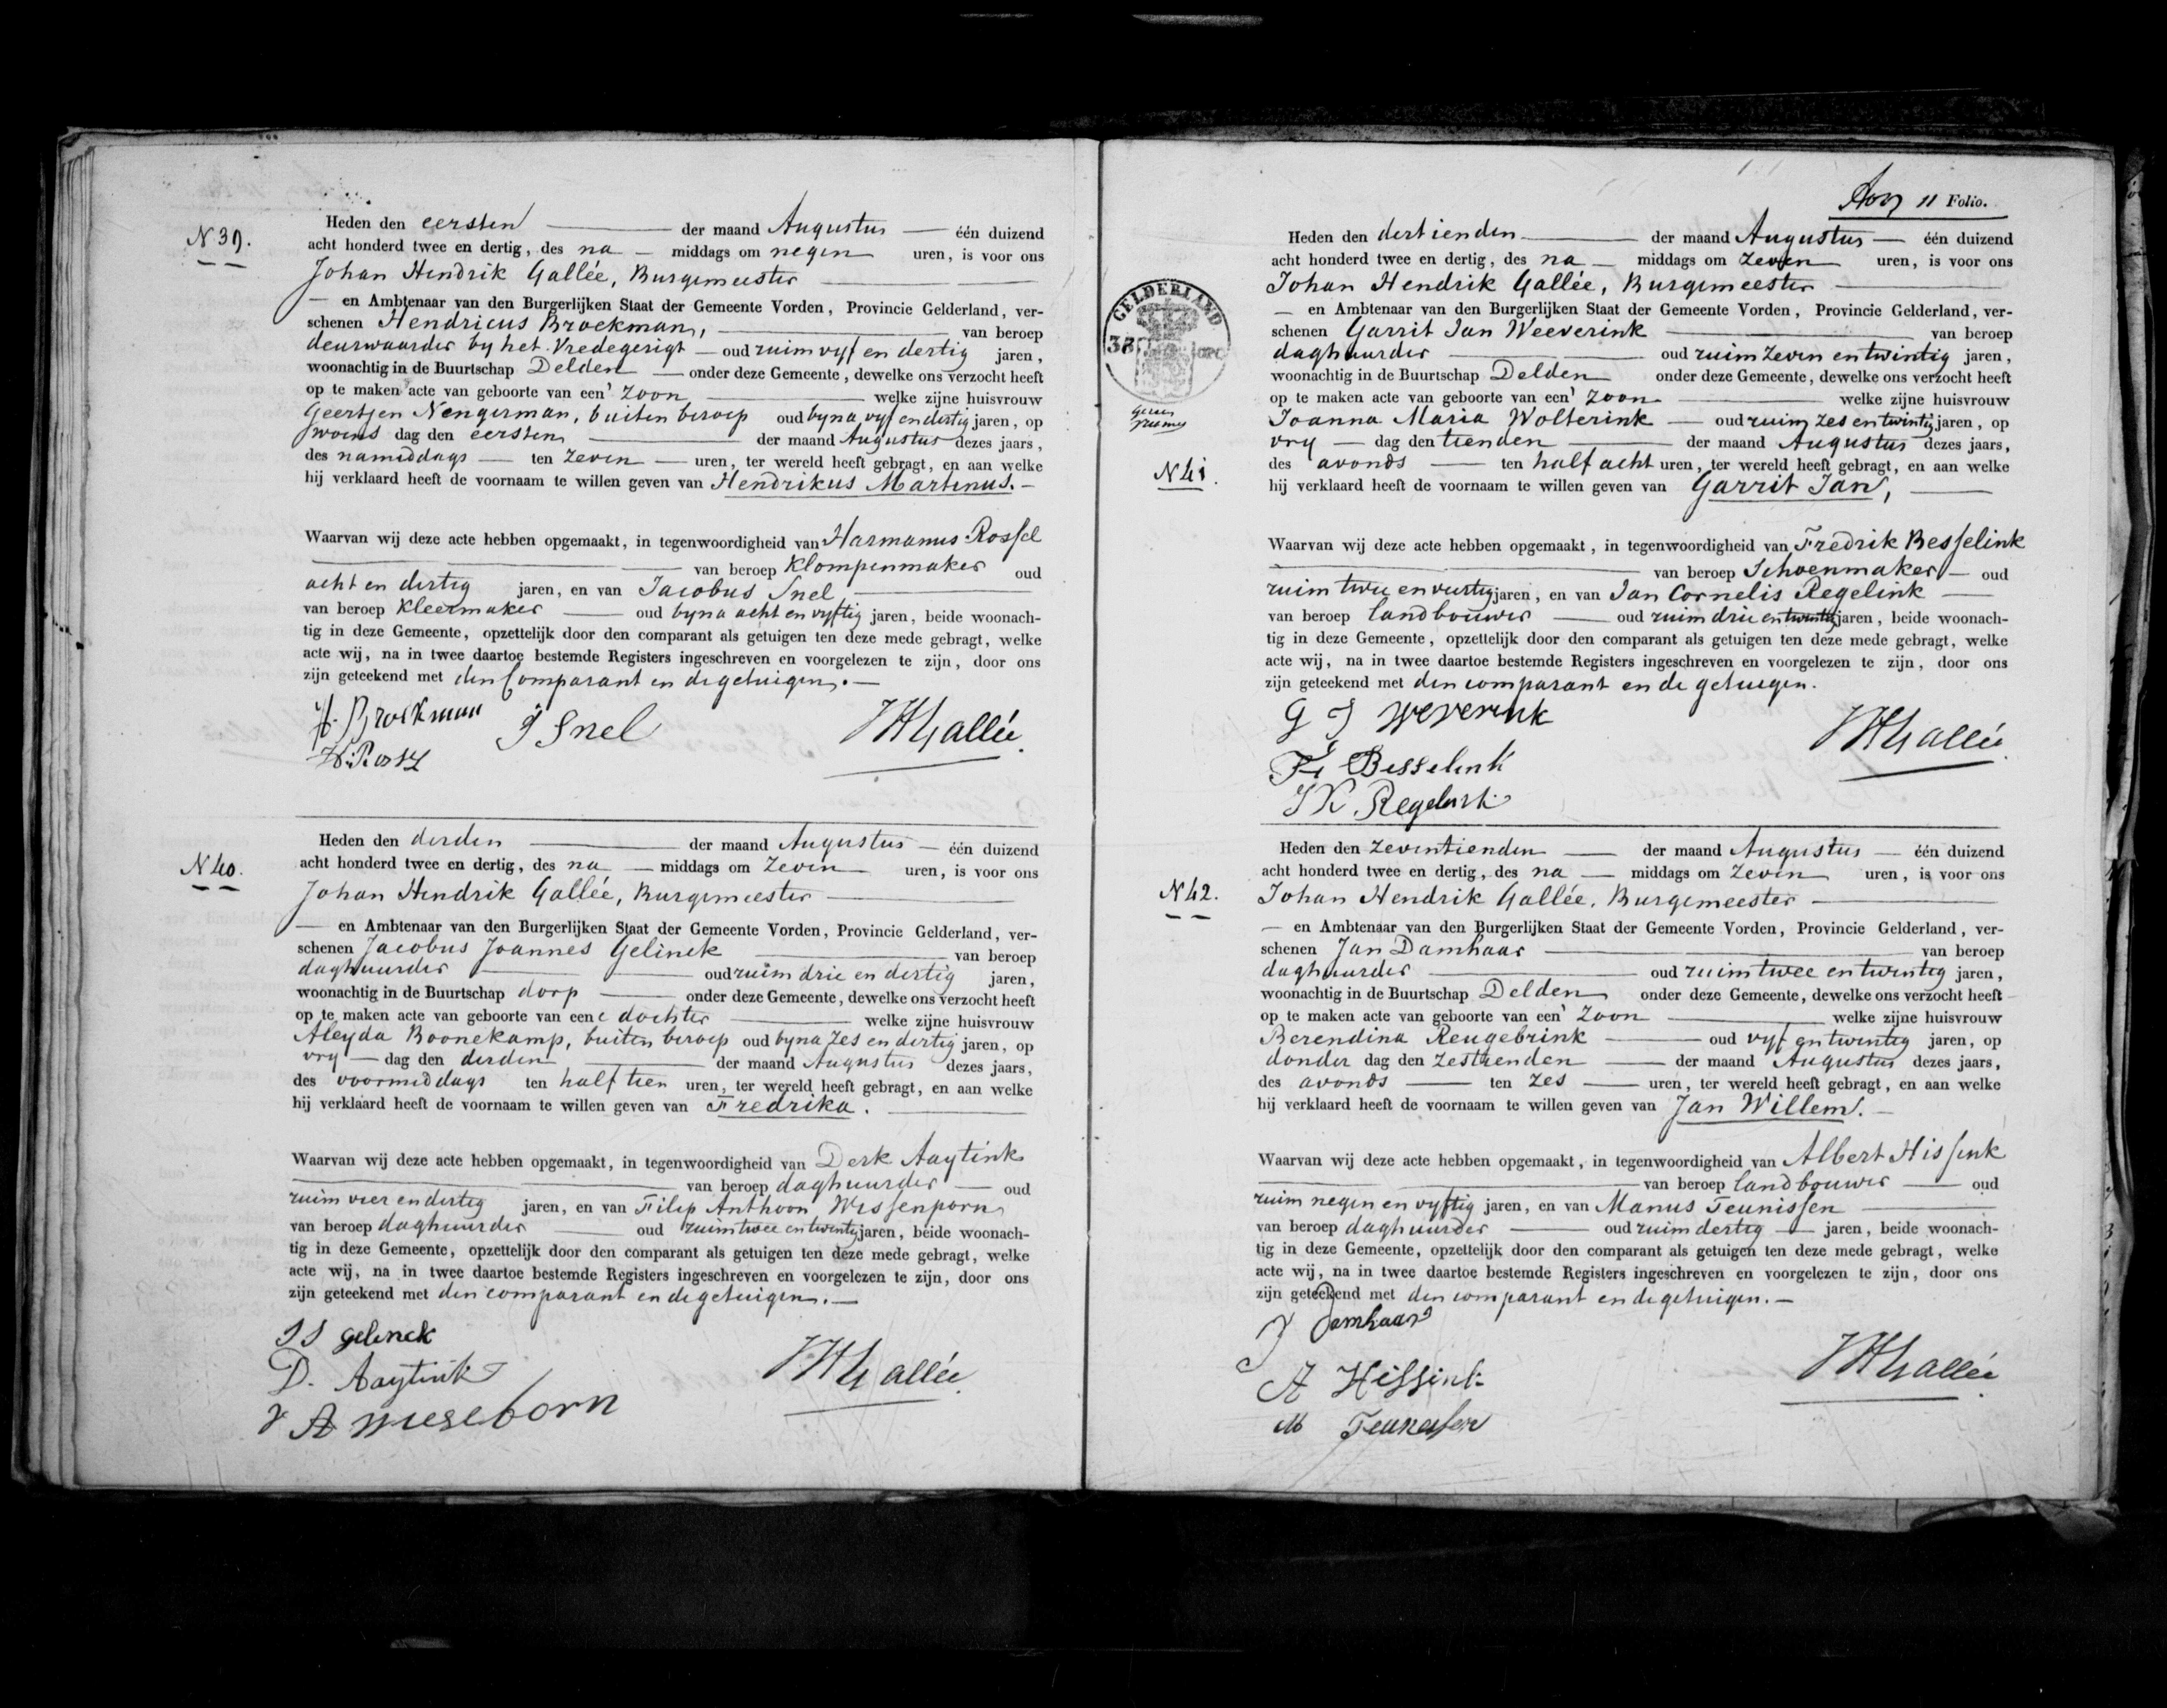 N 39.
Heden den eersten der maand Augustus één duizend
acht honderd twee en dertig, des na middags om negen uren, is voor ons
Johan Hendrik Gallée, Burgemeester
en Ambtenaar van den Burgerlijken Staat der Gemeente Vorden, Provincie Gelderland, ver-
schenen Hendricus Broekman, van beroep
deurwaarder by het Vredegerigt oud ruim vyf en dertig jaren,
woonachtig in de Buurtschap Delden onder deze Gemeente, dewelke ons verzocht heeft
op te maken acte van geboorte van een' zoon welke zijne huisvrouw
Geertjen Nengerman, buiten beroep oud byna vyf en dertig jaren, op
woens dag den eersten der maand Augustus dezes jaars,
des namiddags ten zeven uren, ter wereld heeft gebragt, en aan welke
hij verklaard heeft de voornaam te willen geven van Hendrikus Martinus.
Waarvan wij deze acte hebben opgemaakt, in tegenwoordigheid van Harmanus Rossel
van beroep Klompenmaker oud
acht en dertig jaren, en van Jacobus Snel
van beroep kleermaker oud byna acht en vyftig jaren, beide woonach-
tig in deze Gemeente, opzettelijk door den comparant als getuigen ten deze mede gebragt, welke
acte wij, na in twee daartoe bestemde Registers ingeschreven en voorgelezen te zijn, door ons
zijn geteekend met den Comparant en de getuigen.
H. Broekman J Snel JHGallée
N 40.
Heden den derden der maand Augustus één duizend
acht honderd twee en dertig, des na middags om zeven uren, is voor ons
Johan Hendrik Gallée, Burgemeester
en Ambtenaar van den Burgerlijken Staat der Gemeente Vorden, Provincie Gelderland, ver-
schenen Jacobus Joannes Gelinck van beroep
daghuurder oud ruim drie en dertig jaren,
woonachtig in de Buurtschap dorp onder deze Gemeente, dewelke ons verzocht heeft
op te maken acte van geboorte van eene dochter welke zijne huisvrouw
Aleyda Boonekamp, buiten beroep oud byna zes en dertig jaren, op
vry dag den derden der maand Augustus dezes jaars,
des voormiddags ten half tien uren, ter wereld heeft gebragt, en aan welke
hij verklaard heeft de voornaam te willen geven van Fredrika.
Waarvan wij deze acte hebben opgemaakt, in tegenwoordigheid van Derk Aaytink
van beroep daghuurder oud
ruim vier en dertig jaren, en van Filip Anthoon Wissenporn
van beroep daghuurder oud ruim twee en twintig jaren, beide woonach-
tig in deze Gemeente, opzettelijk door den comparant als getuigen ten deze mede gebragt, welke
acte wij, na in twee daartoe bestemde Registers ingeschreven en voorgelezen te zijn, door ons
zijn geteekend met den comparant en de getuigen.
JJ gelinck
D. Aaytink JHGallée
A wieseborn
11 Folio.
GELDERLAND
Heden den dertienden der maand Augustus één duizend
acht honderd twee en dertig, des na middags om zeven uren, is voor ons
Johan Hendrik Gallée, Burgemeester
en Ambtenaar van den Burgerlijken Staat der Gemeente Vorden, Provincie Gelderland, ver-
schenen Garrit Jan Weeverink van beroep
daghuurder oud ruim zeven en twintig jaren,
woonachtig in de Buurtschap Delden onder deze Gemeente, dewelke ons verzocht heeft
op te maken acte van geboorte van een' zoon welke zijne huisvrouw
Joanna Maria Wolterink oud ruim zes en twintig jaren, op
vry dag den tienden der maand Augustus dezes jaars,
des avonds ten half acht uren, ter wereld heeft gebragt, en aan welke
N 41.
hij verklaard heeft de voornaam te willen geven van Garrit Jan,
Waarvan wij deze acte hebben opgemaakt, in tegenwoordigheid van Fredrik Besselink
van beroep Schoenmaker oud
ruim twee en veertig jaren, en van Jan Cornelis Regelink
van beroep landbouwer oud ruim drie en twintig jaren, beide woonach-
tig in deze Gemeente, opzettelijk door den comparant als getuigen ten deze mede gebragt, welke
acte wij, na in twee daartoe bestemde Registers ingeschreven en voorgelezen te zijn, door ons
zijn geteekend met den comparant en de getuigen.
G J Weverink
JHGallée
Fr Besselink
JK. Regelink
Heden den zeventienden der maand Augustus één duizend
acht honderd twee en dertig, des na middags om zeven uren, is voor ons
N 42.
Johan Hendrik Gallée, Burgemeester
en Ambtenaar van den Burgerlijken Staat der Gemeente Vorden, Provincie Gelderland, ver-
schenen Jan Damhaar van beroep
daghuurder oud ruim twee en twintig jaren,
woonachtig in de Buurtschap Delden onder deze Gemeente, dewelke ons verzocht heeft
op te maken acte van geboorte van een' zoon welke zijne huisvrouw
Berendina Reugebrink oud vyf en twintig jaren, op
donder dag den zestienden der maand Augustus dezes jaars,
des avonds ten zes uren, ter wereld heeft gebragt, en aan welke
hij verklaard heeft de voornaam te willen geven van Jan Willem.
Waarvan wij deze acte hebben opgemaakt, in tegenwoordigheid van Albert Hissink
van beroep landbouwer oud
ruim negen en vyftig jaren, en van Manus Teunissen
van beroep daghuurder oud ruim dertig jaren, beide woonach-
tig in deze Gemeente, opzettelijk door den comparant als getuigen ten deze mede gebragt, welke
acte wij, na in twee daartoe bestemde Registers ingeschreven en voorgelezen te zijn, door ons
zijn geteekend met den comparant en de getuigen.
J Damhaar
A Hissink JHGallée
M Teunissen